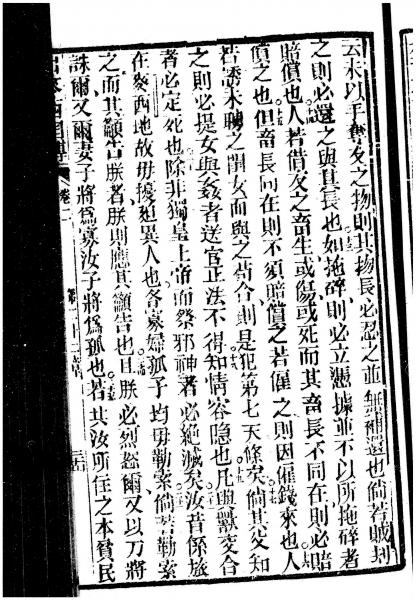 云未以手奪友之物則其物長必忍之並無補還也倘若賊刦
之則必還之與其長也如拖碎則必立憑據並不以所拖碎者
賠償也人若借友之畜生或傷或死而其畜長不同在則必賠
償之也但畜長同在則不須賠償之若僱之則因僱錢來也人
若誘未聘之閨女而與之苟合則是犯第七天條矣倘其父知
之則必提女與姦者送官正法不得知情容隱也凡與獸交合
者必定死也除非獨皇上帝而祭邪神者必絕滅矣汝昔係旅
在麥西地故毋擾廹異人也各寡婦孤子均毋勒索倘若勒索
之而其籲告朕者朕則應其籲告也且朕必烈怒爾又以刀將
誅爾又爾妻子將爲寡汝子將爲孤也若共汝所住之本貧民
出麥西國傳 卷二 第二十二章